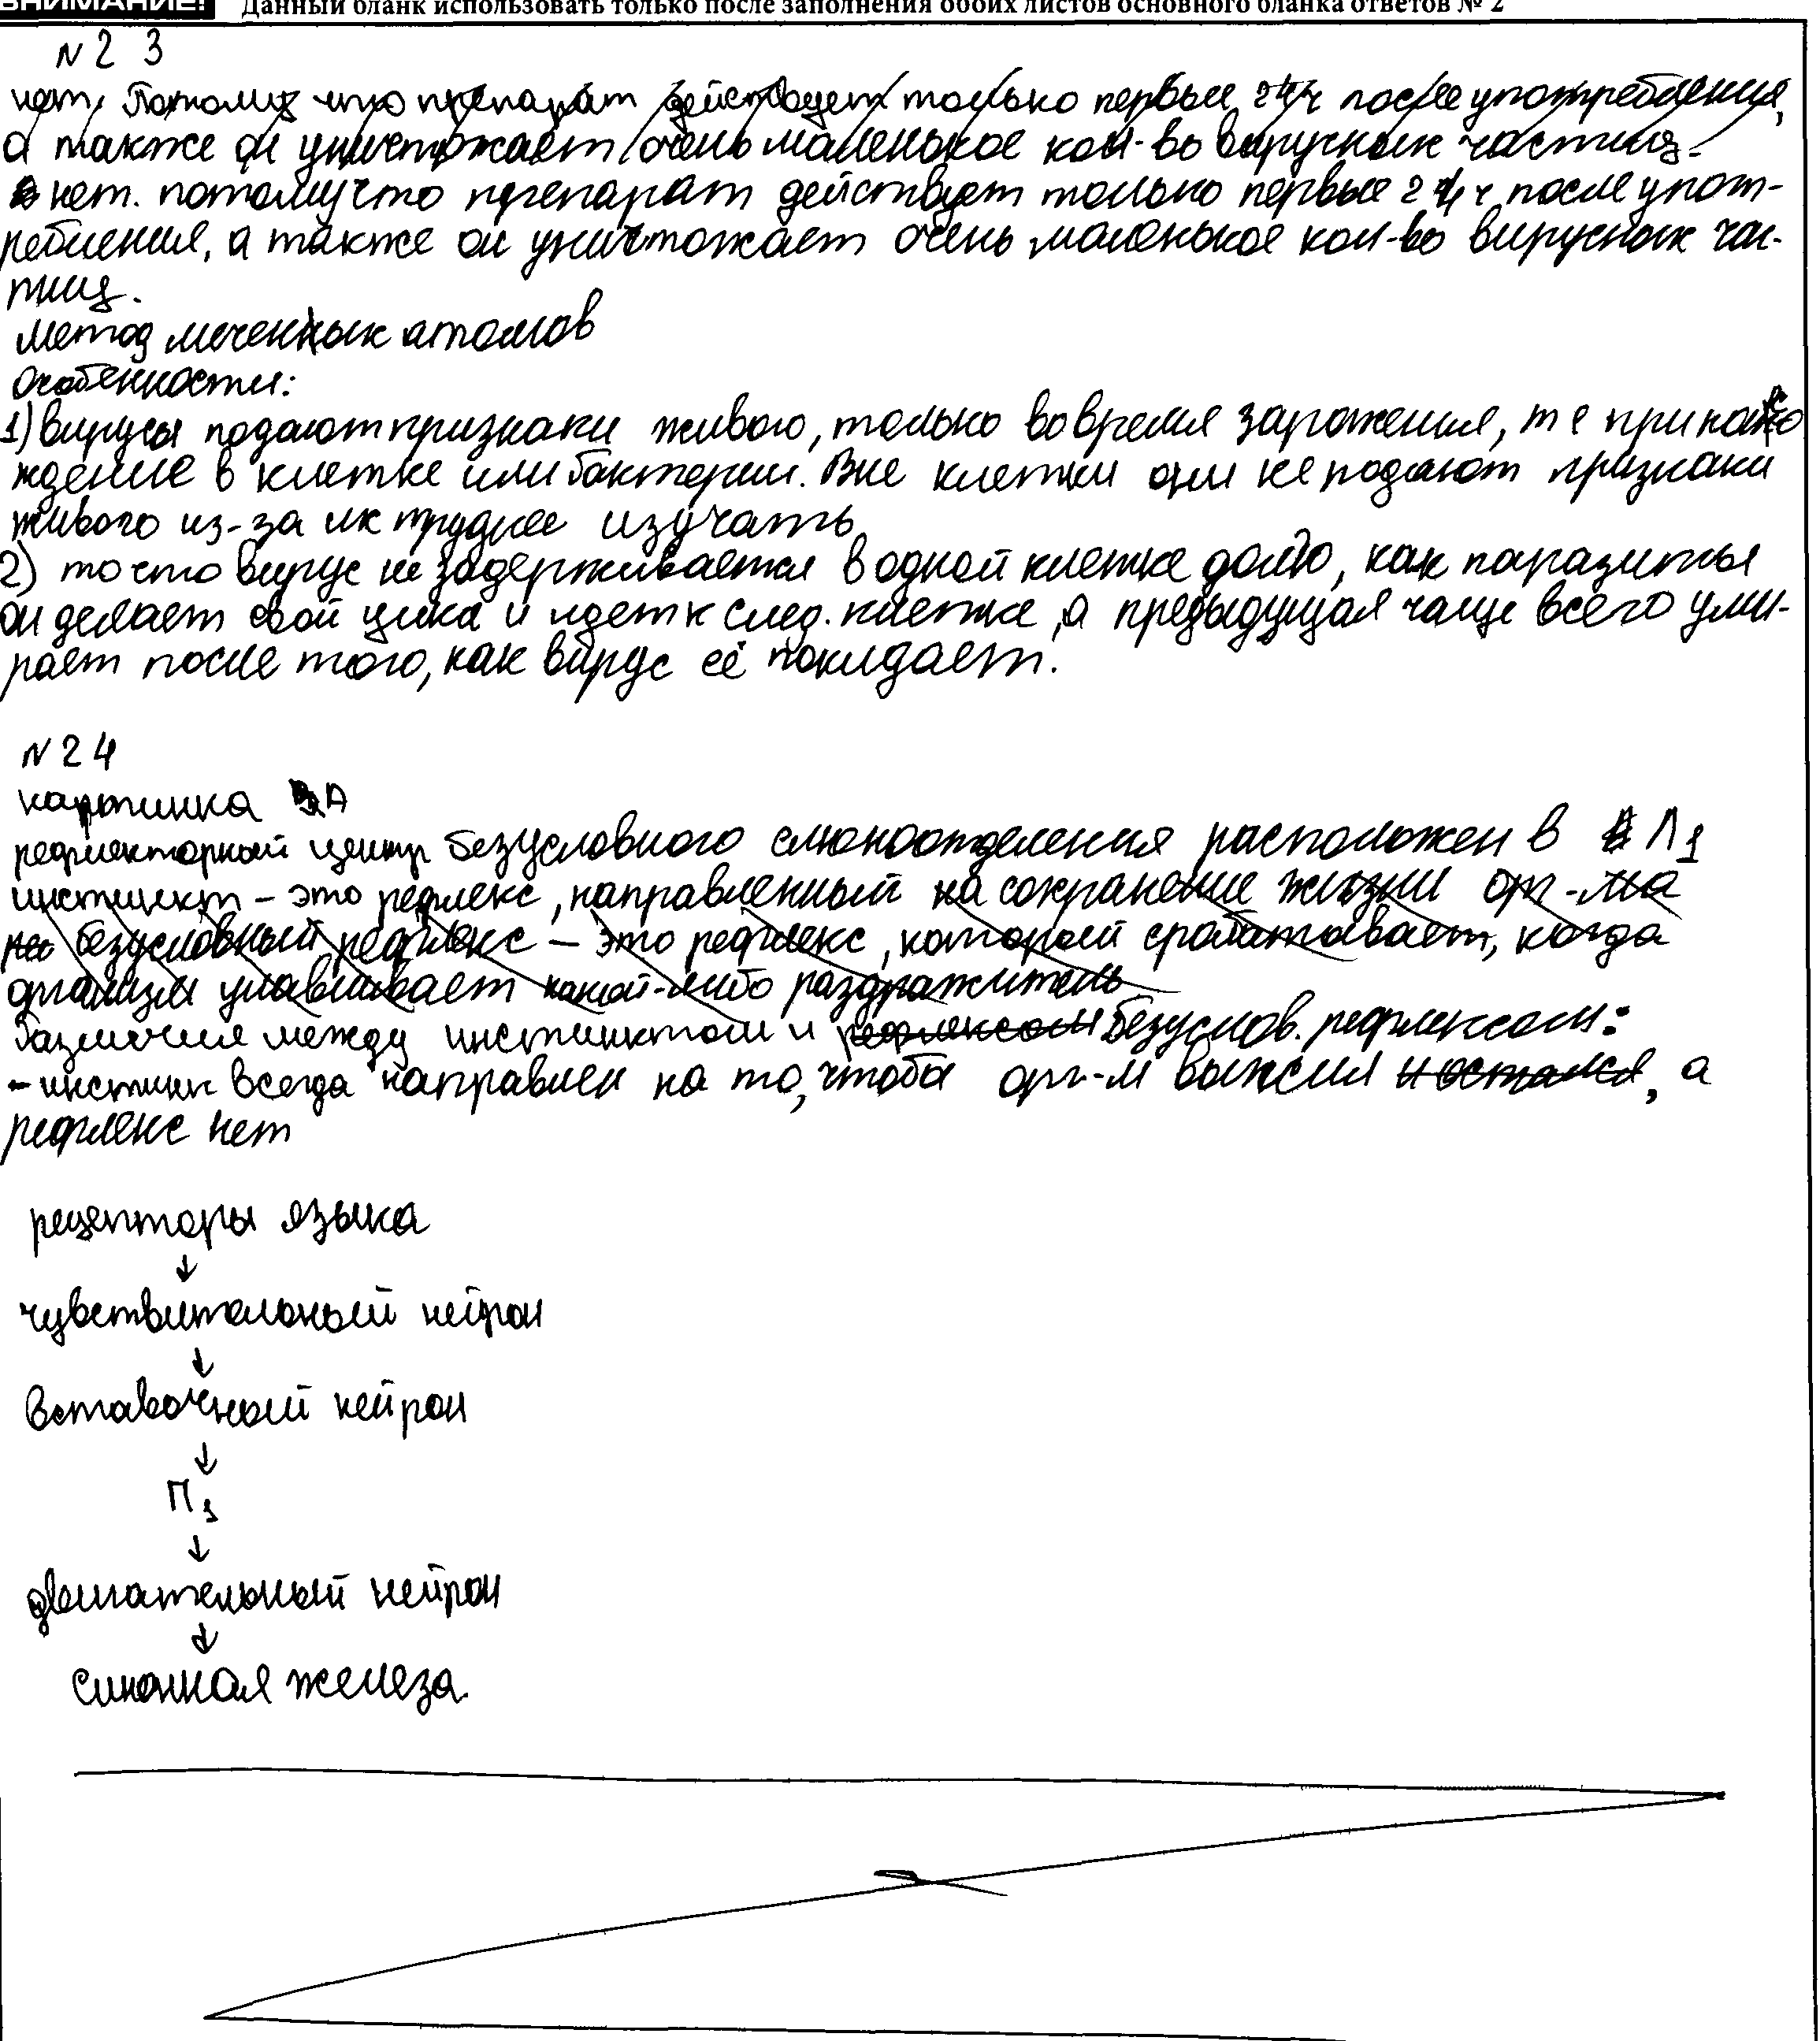 ВНИМАНИЕ! Данный бланк использовать только после заполнения обоих листов основного бланка ответов № 2
N 2 3
нет. Потому что препарат действует только первые 24 ч после употребления,
а также он уничтожает очень маленькое кол-во вирусных частиц.
нет. потому что препарат действует только первые 24 ч после упот-
ребления, а также он уничтожает очень маленькое кол-во вирусных час-
тиц.
метод меченных атомов
особенности:
1) вирусы подают признаки живого, только во время заражения, т е при нахо
ждение в клетке или бактерии. Вне клетки они не подают признаки
живого из-за их труднее изучать
2) то что вирус не задерживается в одной клетке долго, как паразиты
он делает свой цикл и идет к след. клетке, а предыдущая чаще всего уми-
рает после того, как вирус её покидает.
N 2 4
картинка А
рефлекторный центр безусловного слюноотделения расположен в П1
инстинкт - это рефлекс, направленный на сохранение жизни орг-ма
безусловный рефлекс - это рефлекс, который срабатывает, когда
организм улавливает какой-либо раздражитель
Различия между инстинктом и рефлексом безуслов. рефлексом:
- инстинк всегда направлен на то, чтобы орг-м выжил и остался, а
рефлекс нет
рецепторы языка
↓
чувствительный нейрон
↓
вставочный нейрон
↓
П1
↓
двигательный нейрон
↓
слюнная железа